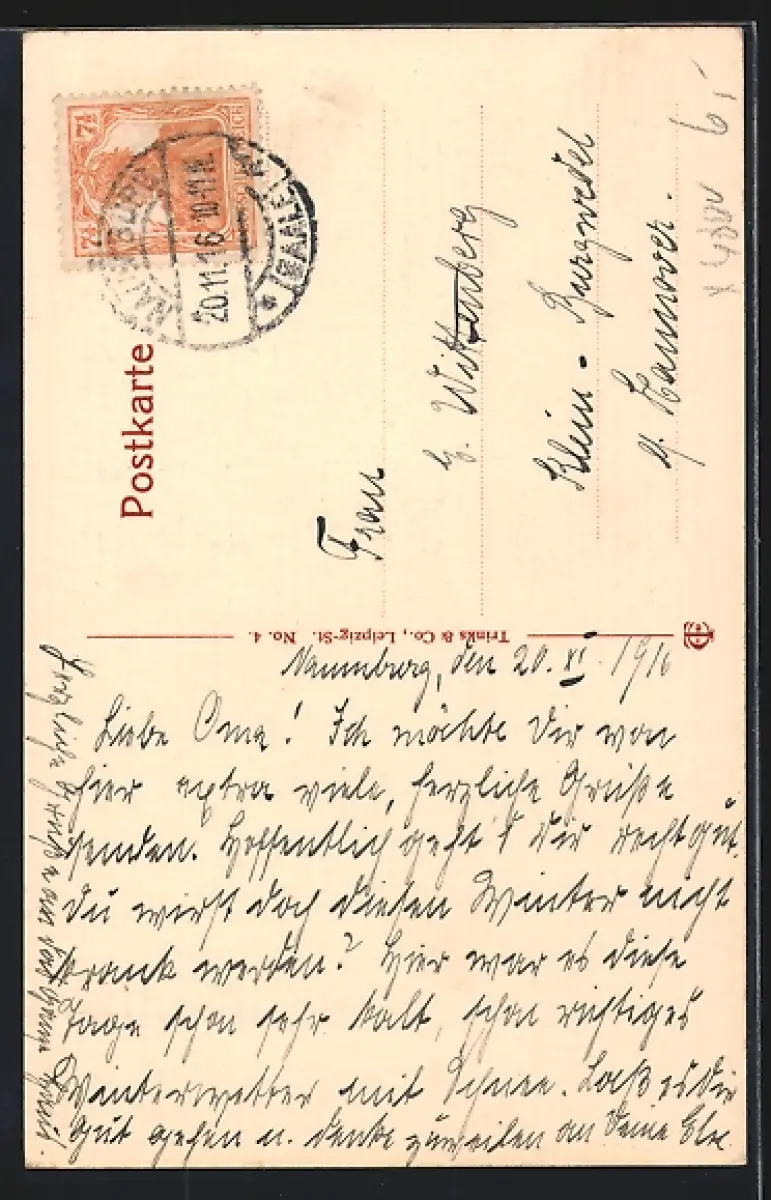 7½ 7½
NAUMBURG
20.11.16 10-11 N.
* (SAALE)
Postkarte
Frau
Wittenberg
Klein-Burgwedel
Hannover.
6,-
Trinks & Co., Leipzig-St. No. 4.
Naumburg, den 20. XI. 1916
Liebe Oma! Ich möchte Dir von
hier extra viele, herzliche Grüße
senden. Hoffentlich geht's dir recht gut.
Du wirst doch diesen Winter nicht
krank werden? Hier war es diese
Tage schon sehr kalt, schon richtiges
Winterwetter mit Schnee. Laß es dir
gut gehen u. denke zuweilen an Deine
Herzliche Grüße an das ganze Haus.